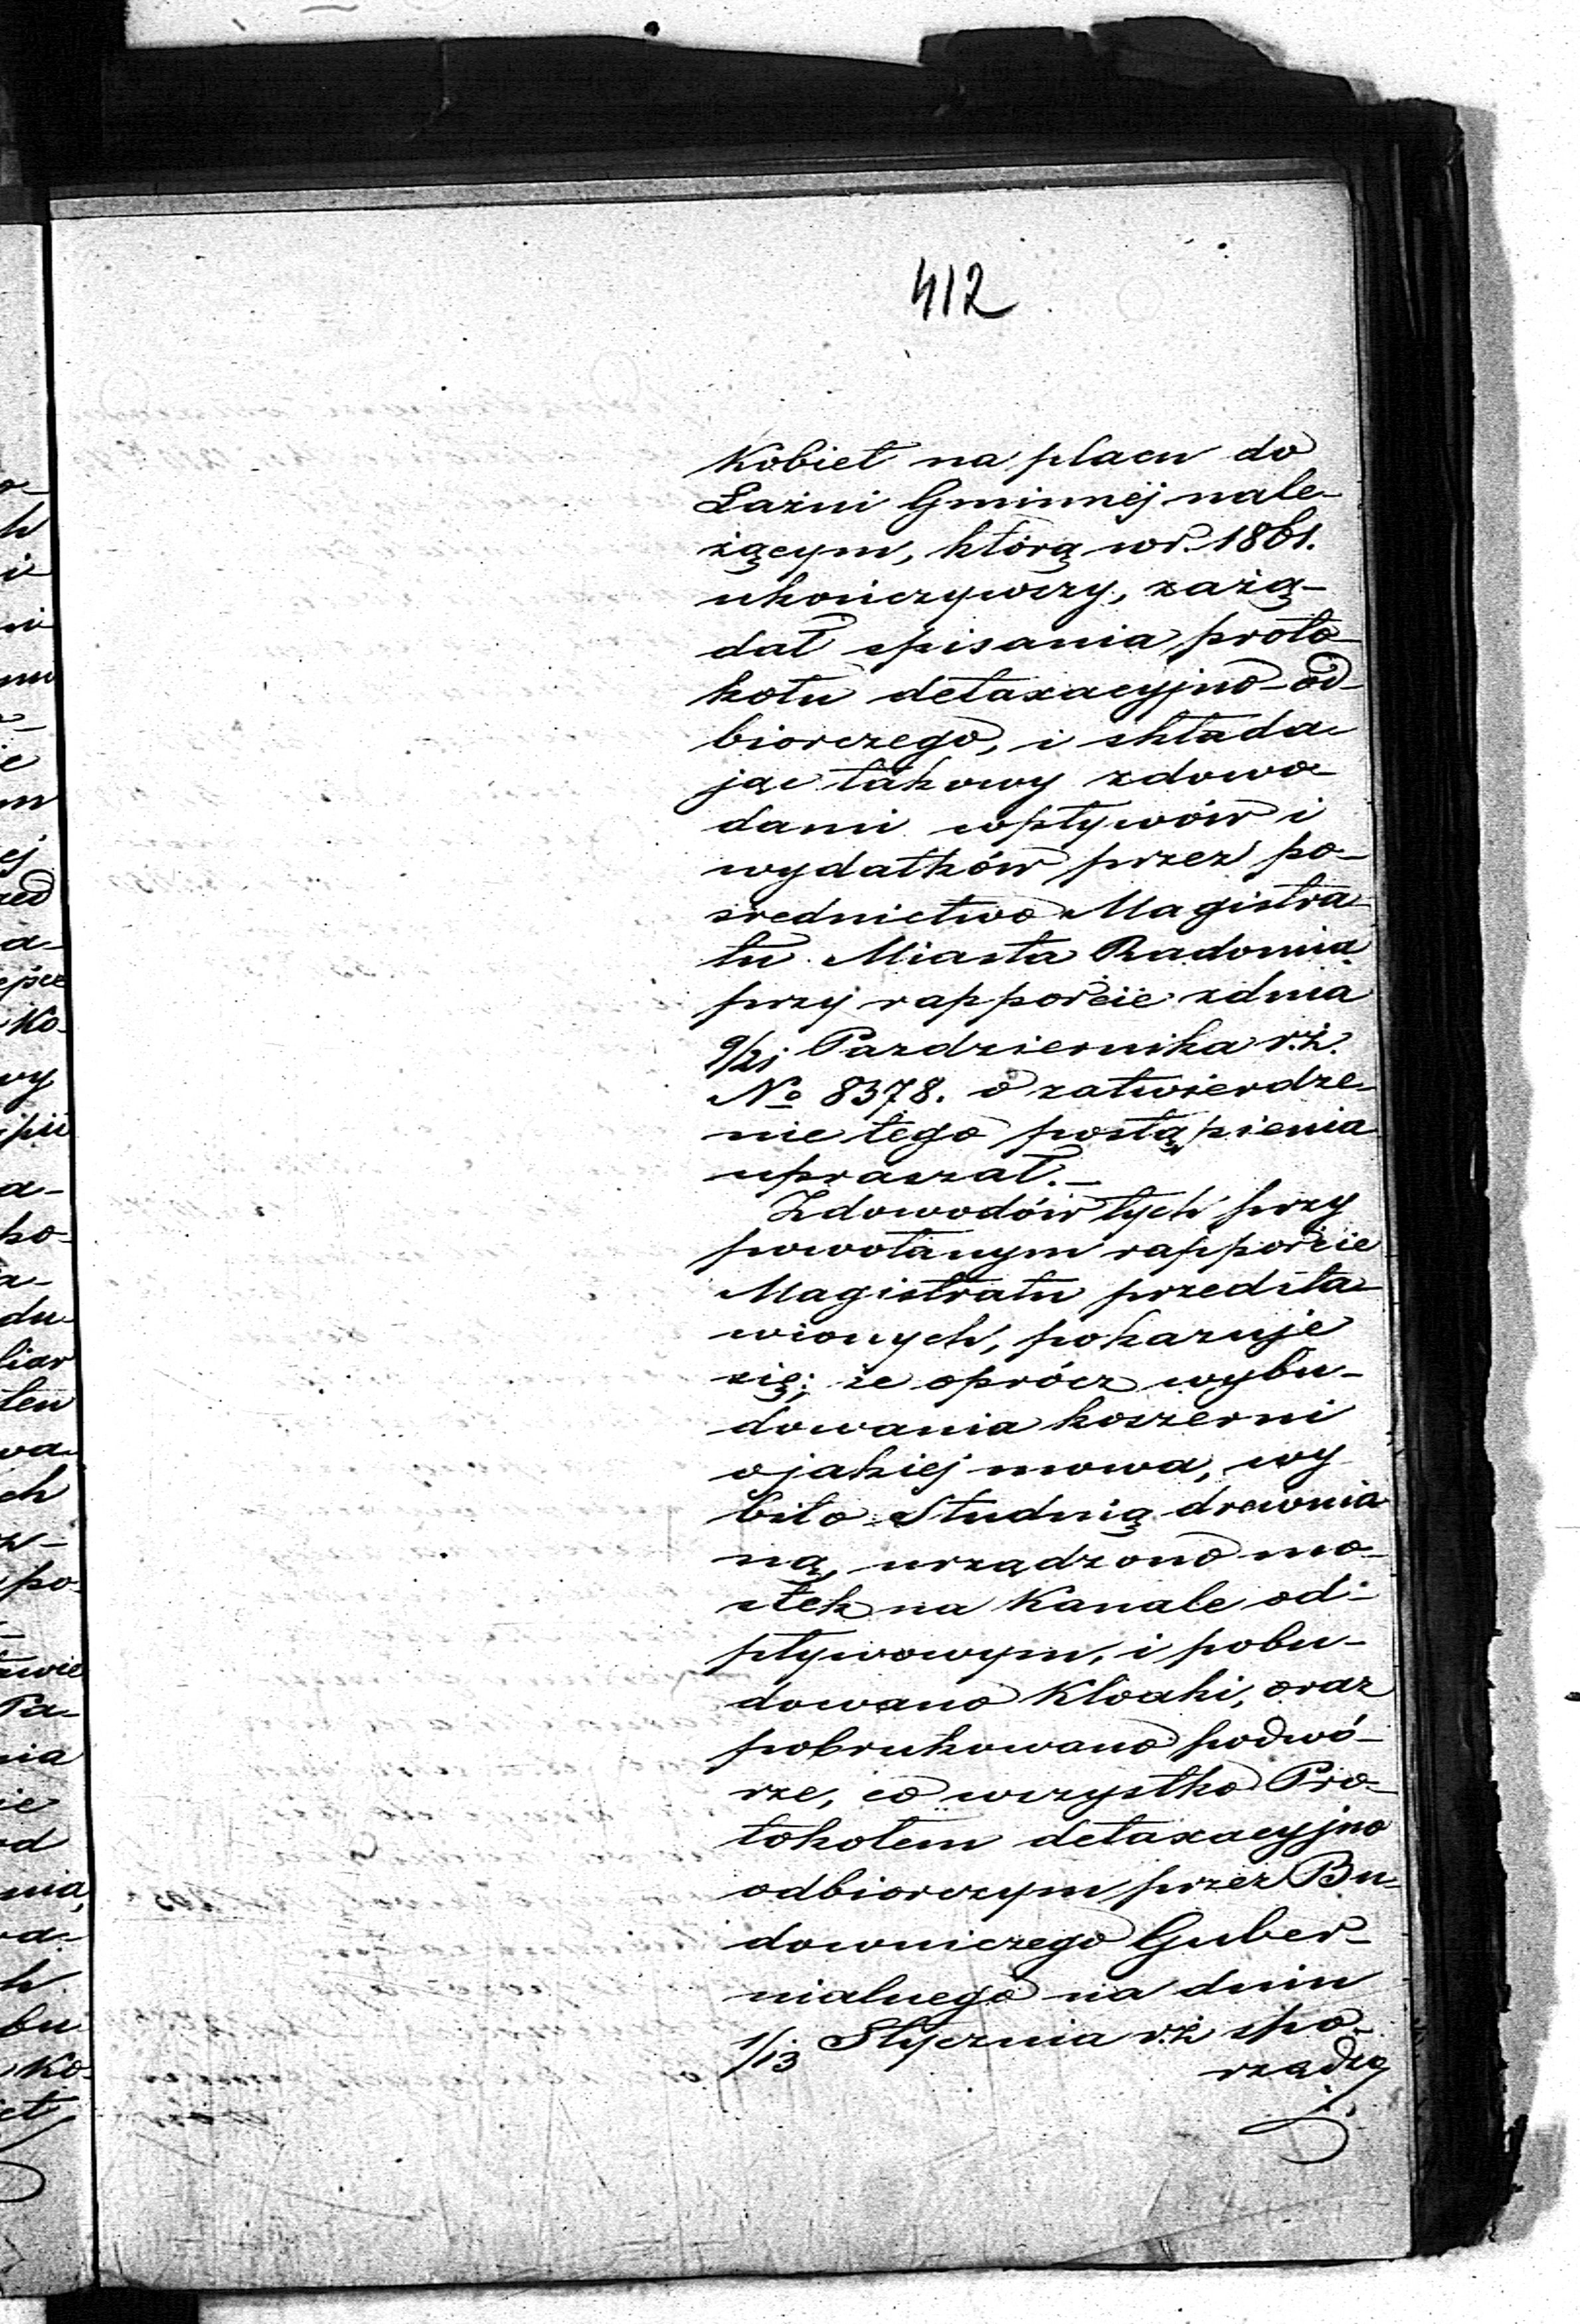 412
Kobiet na placu do
Łaźni Gminnej nale-
żącym, którą w r. 1861.
ukończywszy, zażą-
dał spisania proto-
kołu detaxacyjno-od-
biorczego, i składa-
jąc takowy z dowo-
dami wpływów i
wydatków przez po-
średnictwo Magistra-
tu Miasta Radomia
przy rapporcie z dnia
9/21 Pazdziernika r.z.
No 8378. o zatwierdze-
nie tego postąpienia
upraszał.-
Z dowodów tych przy
powołanym rapporcie
Magistratu przedsta-
wionych, pokazuje
się; że oprócz wybu-
dowania koszerni
o jakiej mowa, wy
bito Studnią drewnia
ną, urządzono mo-
stek na Kanale od-
pływowym, i pobu-
dowano Kloaki, oraz
pobrukowano podwó-
rze, co wszystko Pro-
tokołem detaxacyjno
odbiorczym przez Bu-
downiczego Guber-
nialnego na dniu
1/13 Stycznia r.z. spo-
rządzo